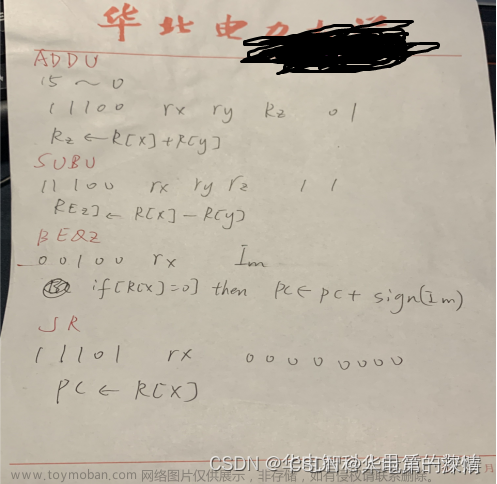 华北电力大学
ADDU
15 ~ 0
11100 rx ry Rz 01
Rz ← R[X]+R[y]
SUBU
11100 rx ry rz 11
R[z] ← R[X] - R[y]
BEQZ
00100 rx Im
if[R[X]=0] then PC ← PC + sign(Im)
JR
11101 rx 00000000
PC ← R[X]
月
www.toymoban.com 网络图片仅供展示，非存储，如有侵权请联系删除。